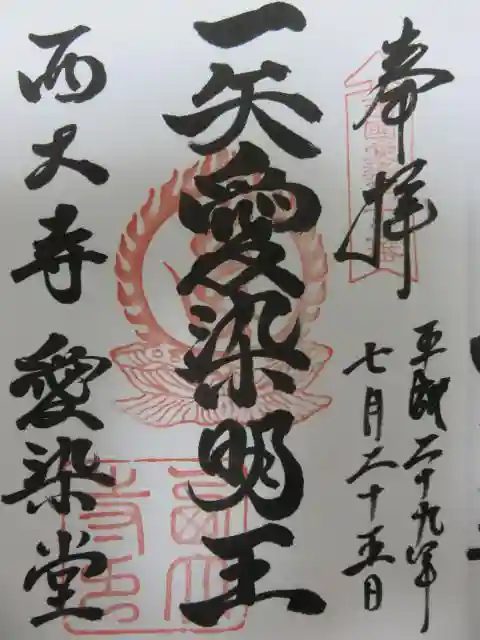 奉拝
平成二十九年
七月二十五日
一矢愛染明王
西大寺 愛染堂